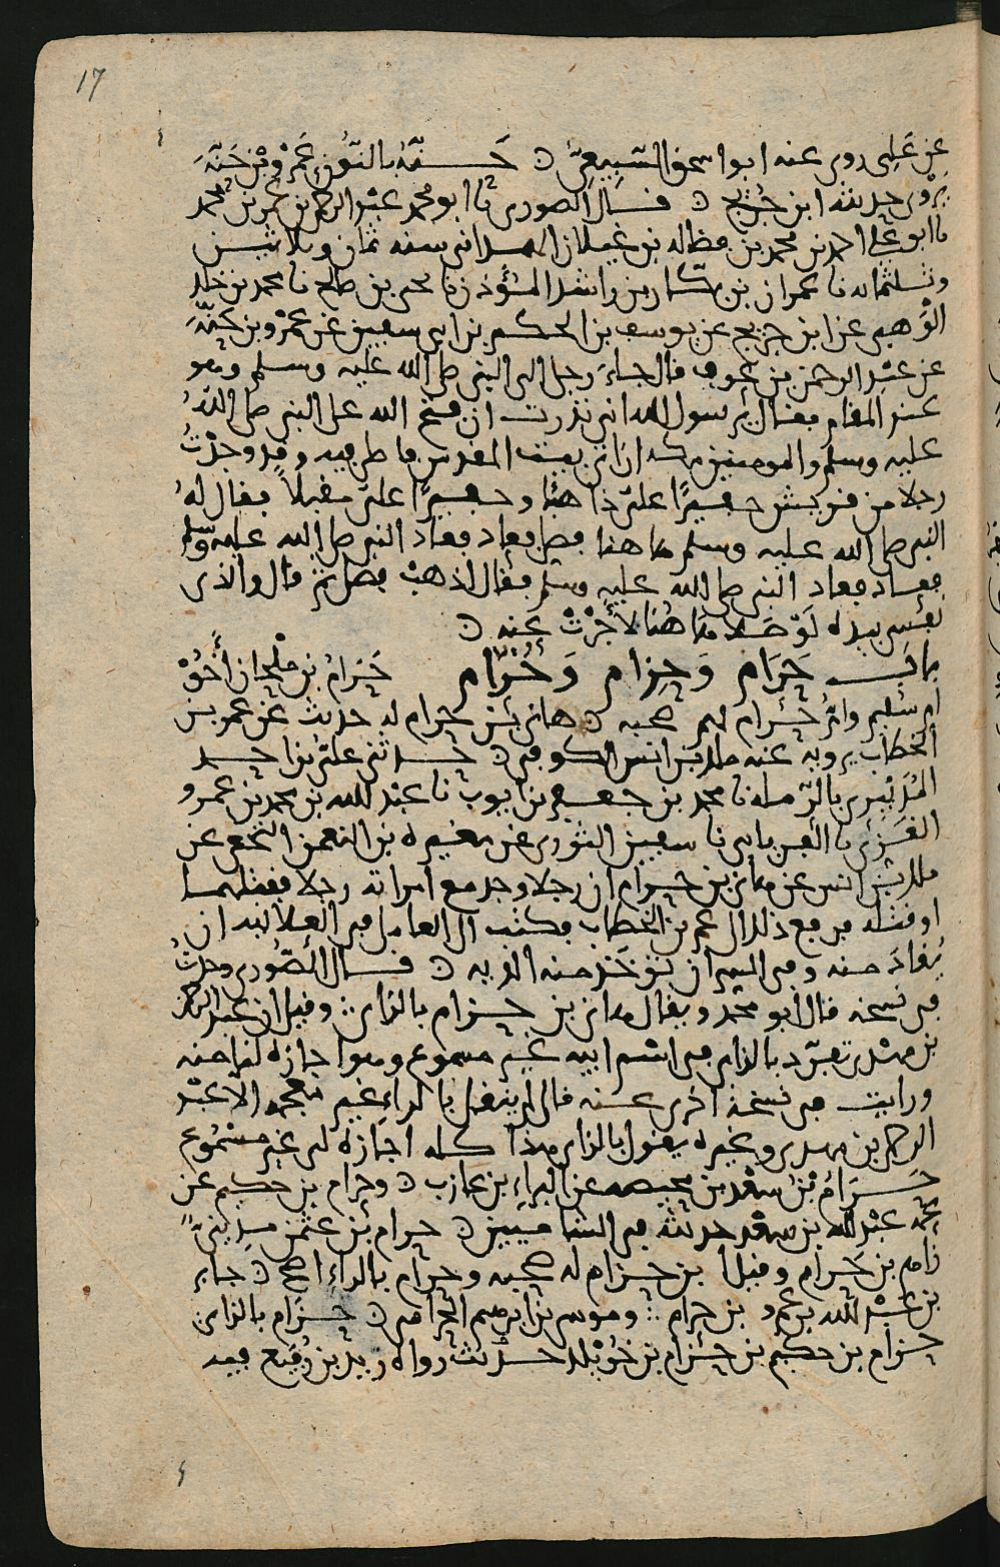 17
عن علي روى عنه ابو اسحق السبيعي ه حنة بالنون عمرو بن حنة
يروي حديثه ابن جريج ه قال الصوري نا ابو محمد عبد الرحمن بن عمر بن محمد
نا ابو علي احمد بن محمد بن فضاله بن غيلان الهمداني سنه ثمان وثلاثين
وثلثمائه نا عمران بن بكار بن راشد المؤذن نا يحيى بن صالح نا محمد بن خلد
الوهبي عن ابن جريج عن يوسف بن الحكم بن ابي سفين عن عمرو بن حنة
عن عبد الرحمن بن عوف قال جاء رجل الى النبي صلى الله عليه وسلم وهو
عند المقام فقال يرسول الله اني نذرت ان فتح الله على النبي صلى الله
عليه وسلم والمومنين مكه ان اتي بيت المقدس فاصلي فيه وقد وجدت
رجلا من قريش خفيرا علي ذاهبا وخفيرا علي مقبلا فقال له
النبي صلى الله عليه وسلم هاهنا فصل فعاد فعاد النبي صلى الله عليه وسلم
فعاد فعاد النبي صلى الله عليه وسلم فقال اذهب فصل ثم قال والذي
نفسي بيده لو صلاها هاهنا لأجزت عنه ه
باب حرام وحزام وخرام حرام بن ملحان أخو
ام سليم وام حرام لهم صحبه ه هاني بن حرام له حديث عن عمر بن
الخطاب يرويه عنه ملك بن انس الكوفي ه حدثني علي بن احمد
بالرمله نا محمد بن جعفر بن ايوب نا عبد الله بن محمد بن عمرو
الغزي نا الفريابي نا سفين الثوري عن مغيره بن النعمن النخعي عن
ملك بن انس عن هاني بن حرام ان رجلا وجد مع امراته رجلا فقتلهما
او قتله فرفع ذلك الى عمر بن الخطاب فكتب الى العامل في العلانيه ان
يقاد منه وفي السر ان تؤخذ منه الديه ه قال الصوري وجدت
في نسخه قال ابو محمد ويقال هاني بن حزام بالزاي وقيل ان عبد الرحمن
بن مهدي تفرد بالزاي في اسم ابيه غير مسموع وهو اجازه لنا منه
ورايت في نسخة اخرى عنه قال لم ينقل بالراء غير معجمه الا عبد
الرحمن بن مهدي وغيره يقول بالزاي هذا كله اجازه لي غير مسموع
حرام بن سعد بن محيصه عن البراء بن عازب ه وحرام بن حكيم عن
عمه عبد الله بن سعد حديثه في الشاميين ه حرام بن عثمن مديني
زاهر بن حرام وقيل بن حزام له صحبه وحرام بالراء اصح ه جابر
بن عبد الله بن عمرو بن حرام ∴ وموسى بن ابرهيم الحرامي ه حزام بالزاي
حزام بن حكيم بن حزام بن خويلد حديث رواه زيد بن رفيع فيه